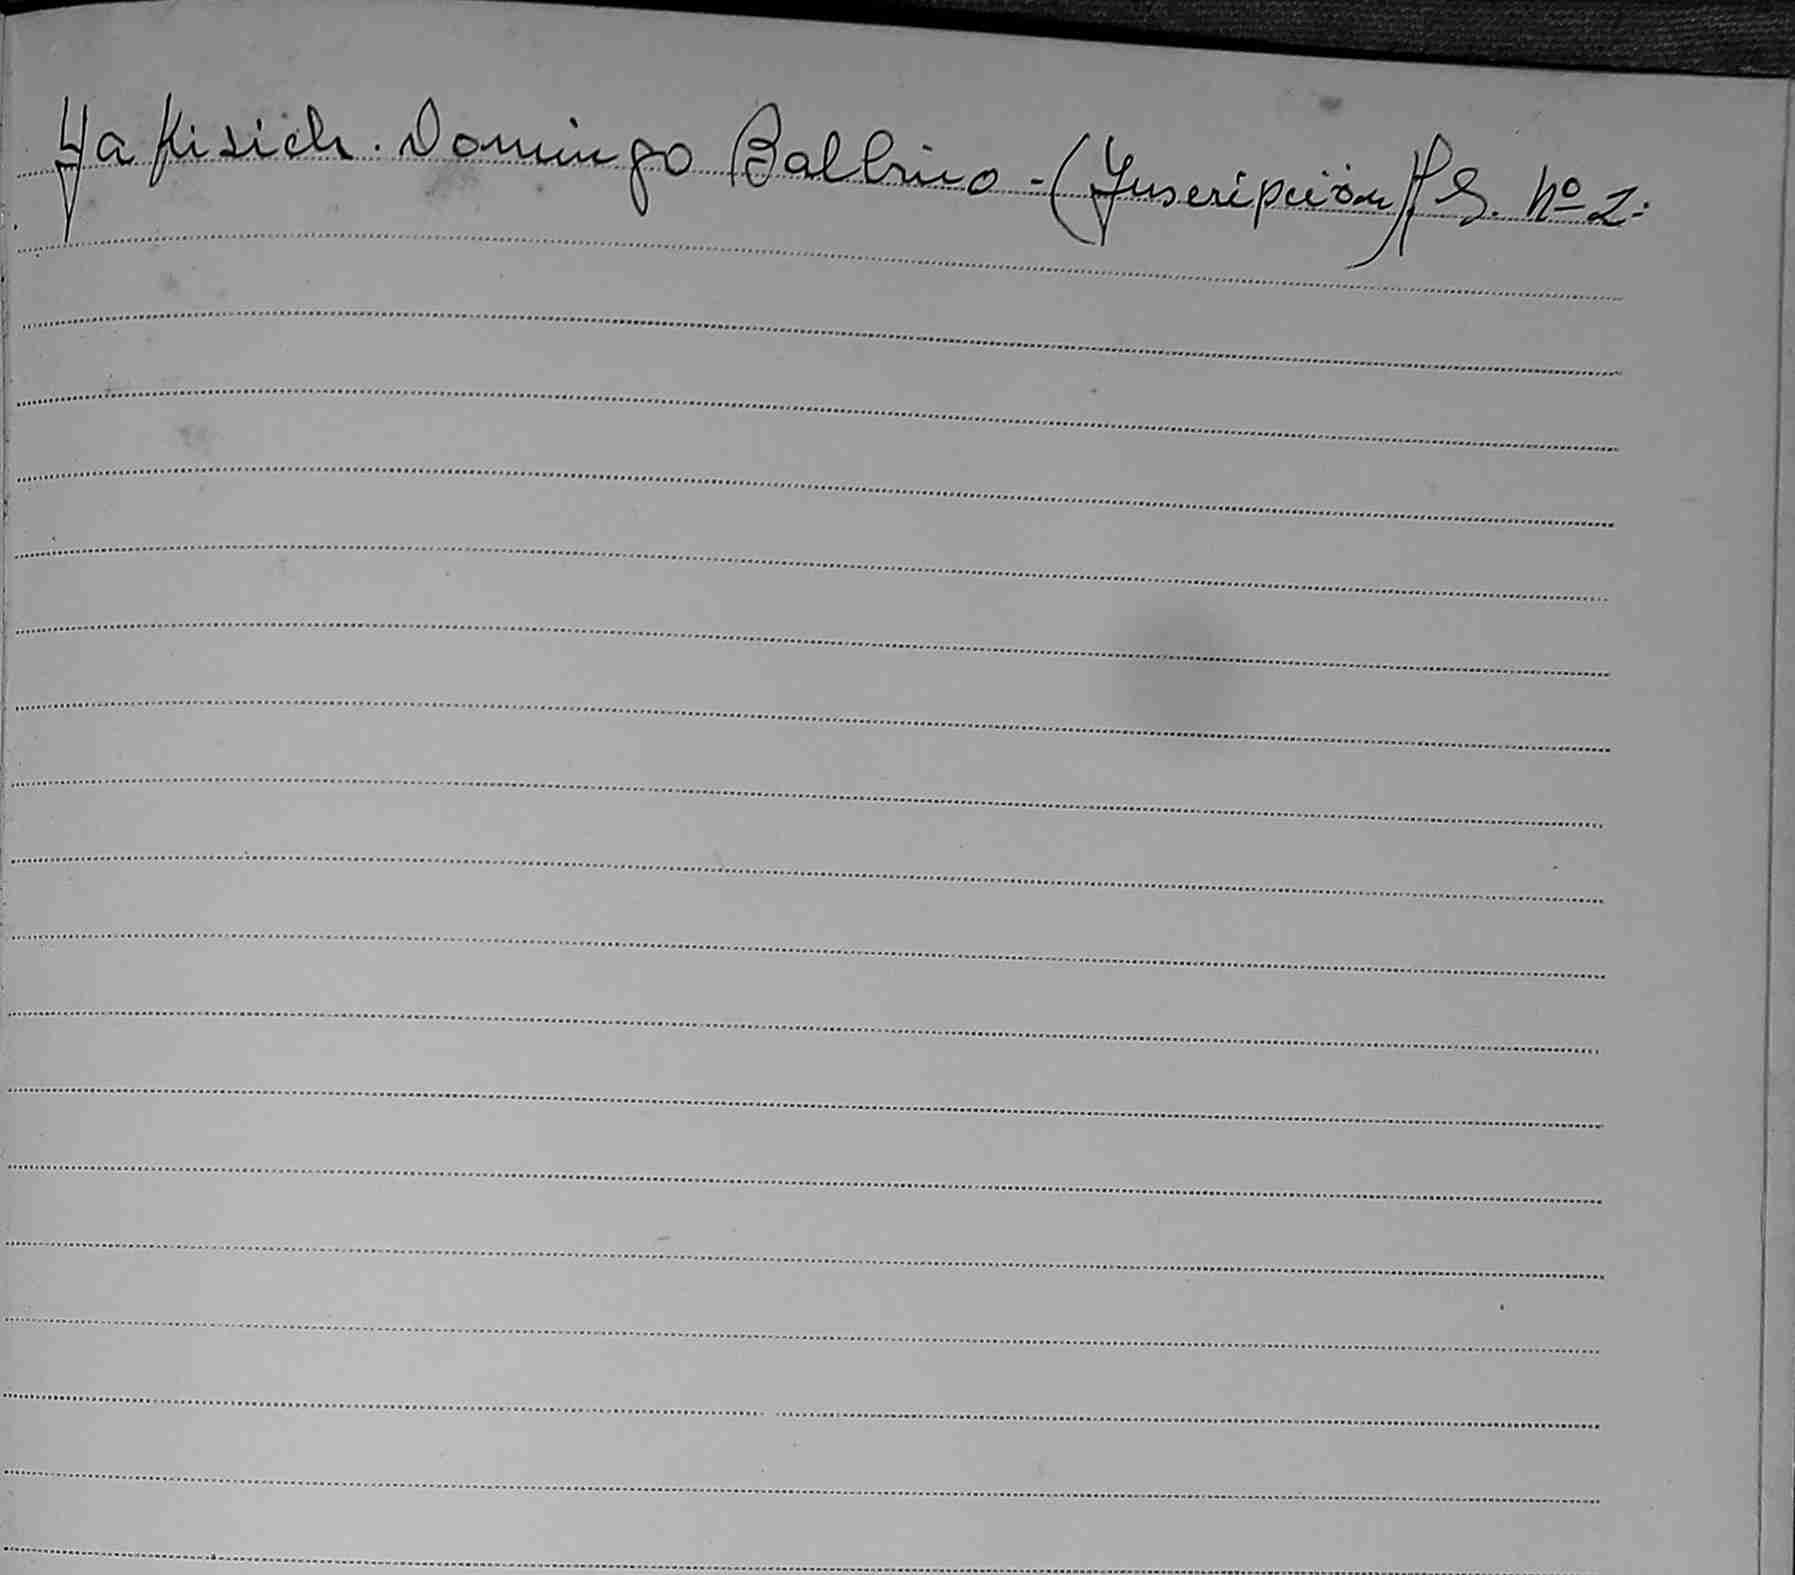 Yaksich. Domingo Balbino - (Inscripción) f S. nº 2.